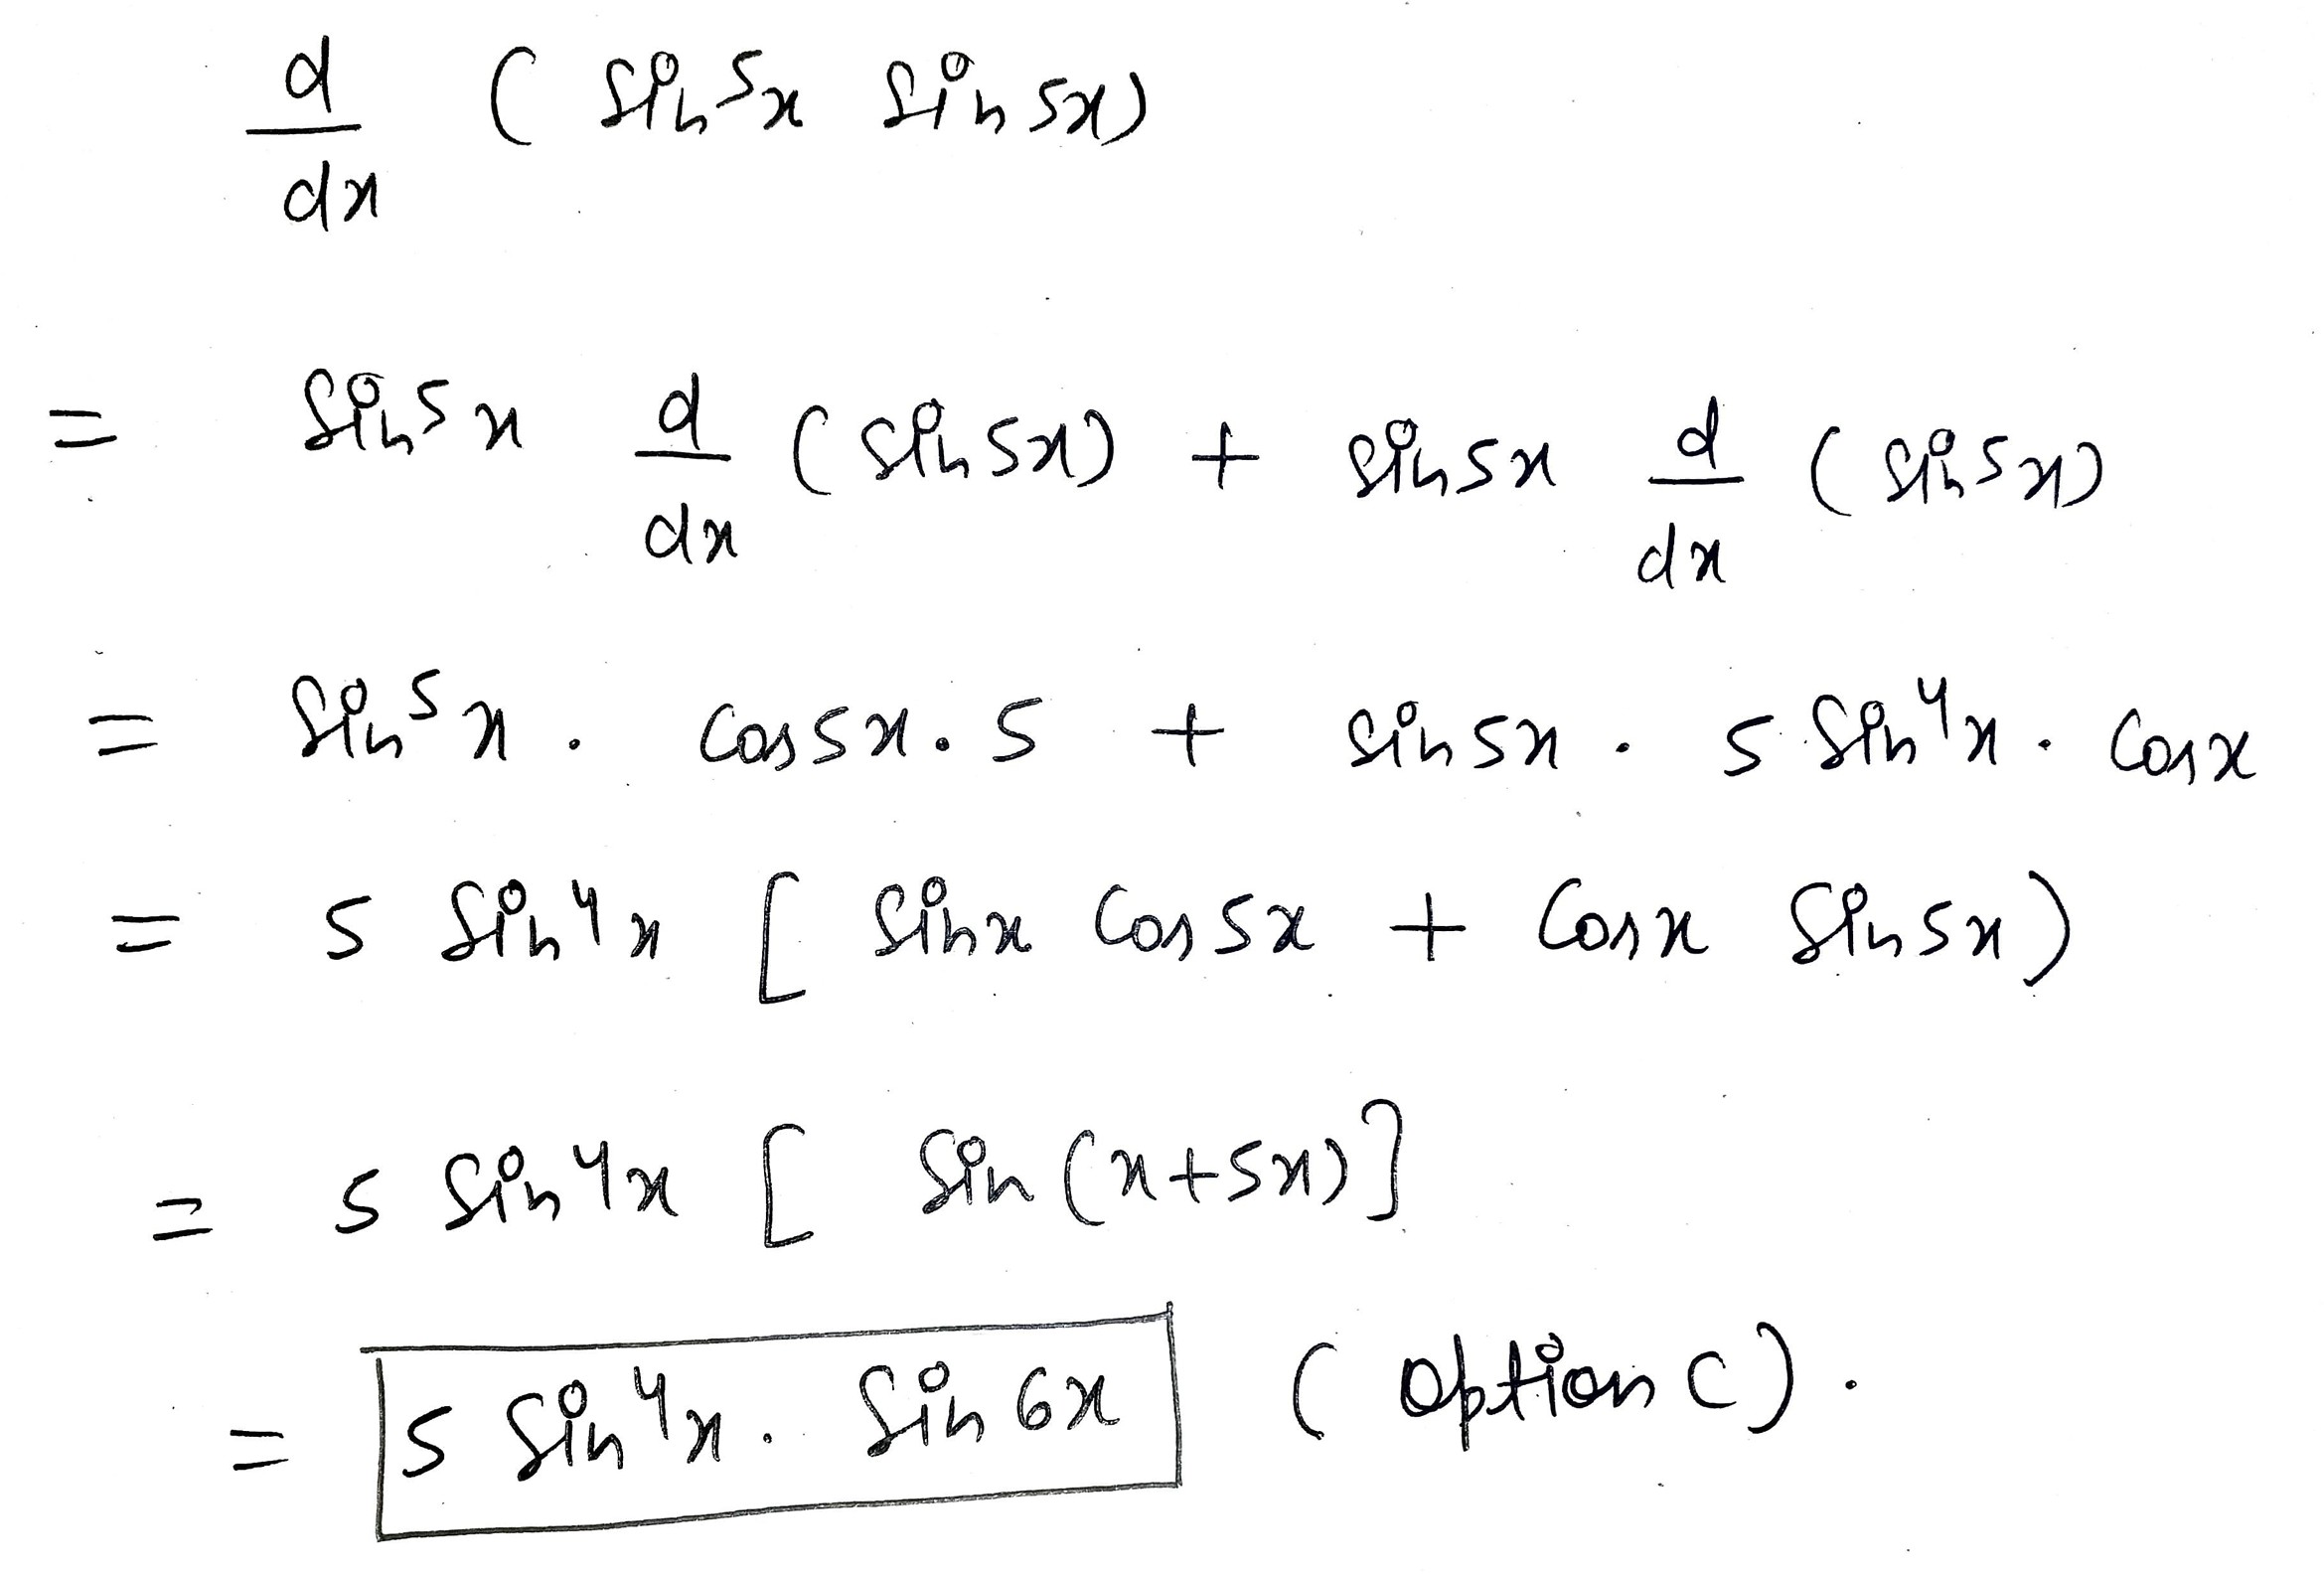 d/dx ( sin⁵x sin5x)
= sin⁵x d/dx (sin5x) + sin5x d/dx (sin⁵x)
= sin⁵x . cos5x . 5 + sin5x . 5 sin⁴x . cosx
= 5 sin⁴x [ sinx cos5x + cosx sin5x)
= 5 sin⁴x [ sin (x+5x)]
= 5 sin⁴x . sin 6x ( option C) .